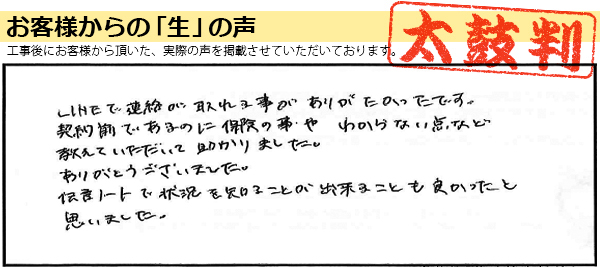 お客様からの「生」の声
太鼓判
工事後にお客様から頂いた、実際の声を掲載させていただいております。
LINEで連絡が取れる事がありがたかったです。
契約前であるのに保険の事や わからない点など
教えていただいて助かりました。
ありがとうございました。
伝言ノートで状況を知ることが出来ることも良かったと
思いました。